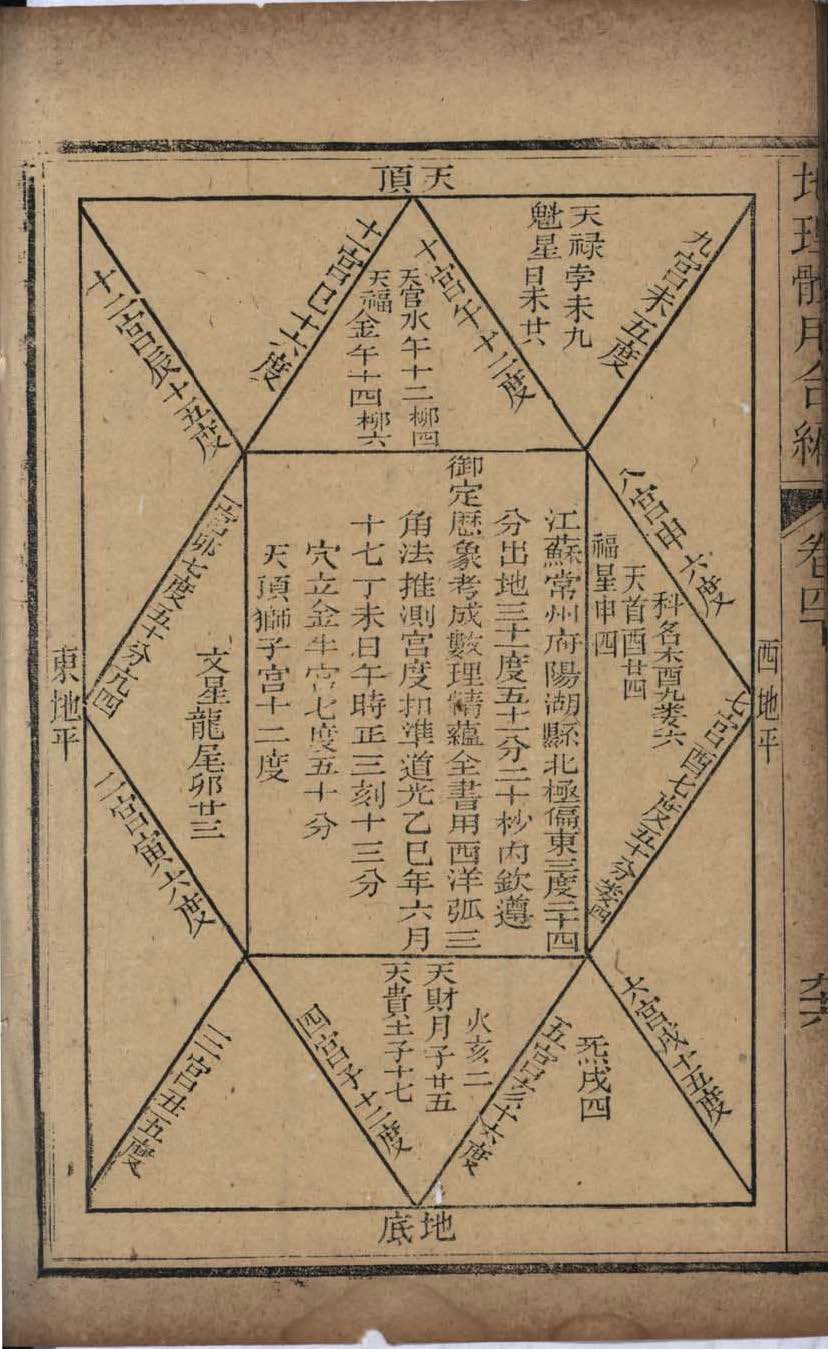 地理體用合編
卷四
天頂
西地平
東地平
地底
九宮未五度
天祿孛未九
魁星日未廿六
十宮午十二度
天官水午十二柳四
天福金午十四柳六
十一宮巳十六度
十二宮辰十五度
一宮卯七度五十分亢四
文星龍尾卯廿三
二宮寅六度
三宮丑五度
四宮子十二度
天貴土子十七
天財月子廿五
火亥二
五宮亥十六度
炁戌四
六宮戌十五度
七宮酉七度五十分婁四
科名木酉九婁六
天首酉廿四
福星申四
八宮申六度
江蘇常州府陽湖縣北極偏東三度二十四
分出地三十一度五十一分二十秒內欽遵
御定歷象考成數理精蘊全書用西洋弧三
角法推測宮度扣準道光乙巳年六月
十七丁未日午時正三刻十三分
穴立金牛宮七度五十分
天頂獅子宮十二度